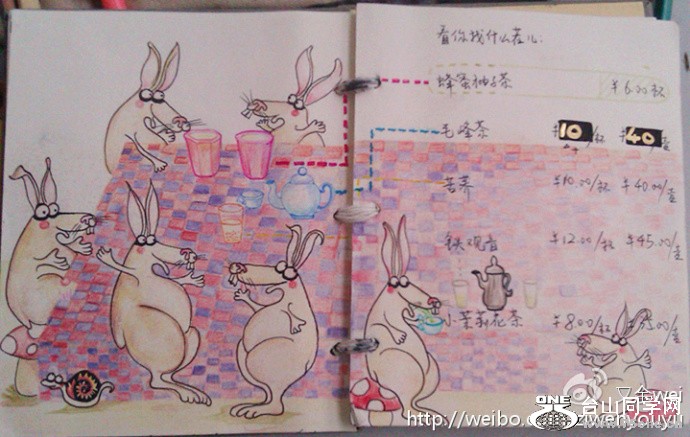 看你找什么茬儿:
蜂蜜柚子茶 ¥6.00/杯
毛峰茶 ¥10/杯 ¥40/壶
苦荞 ¥10.00/杯 ¥40.00/壶
铁观音 ¥12.00/杯 ¥45.00/壶
小茉莉花茶 ¥8.00/杯 /壶
ONE 台山同学网
http://weibo.com/